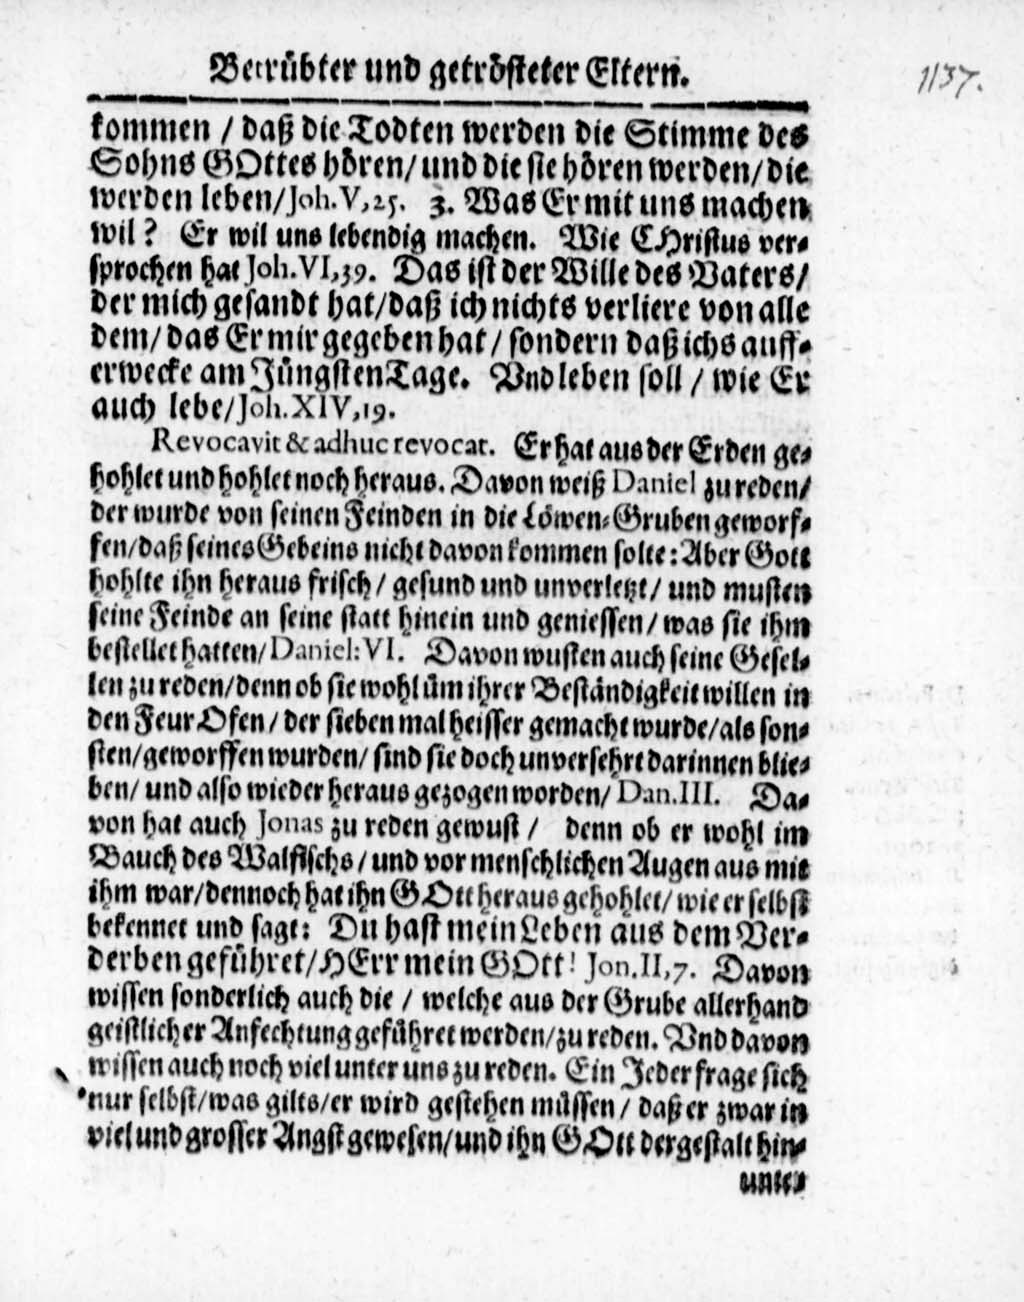 Betrübter und getrösteter Eltern.
1137.
kommen / daß die Todten werden die Stimme des
Sohns GOttes hören/ und die sie hören werden/ die
werden leben/ Joh. V, 25. 3. Was Er mit uns machen
wil? Er wil uns lebendig machen. Wie CHristus ver-
sprochen hat Joh. VI, 39. Das ist der Wille des Vaters/
der mich gesandt hat/ daß ich nichts verliere von alle
dem/ das Er mir gegeben hat / sondern daß ichs auff-
erwecke am Jüngsten Tage. Vnd leben soll / wie Er
auch lebe/ Joh. XIV, 19.
Revocavit & adhuc revocat. Er hat aus der Erden ge-
hohlet und hohlet noch heraus. Davon weiß Daniel zu reden/
der wurde von seinen Feinden in die Löwen-Gruben geworf-
fen/ daß seines Gebeins nicht davon kommen solte: Aber Gott
hohlte ihn heraus frisch/ gesund und unverletzt/ und musten
seine Feinde an seine statt hinein und geniessen/ was sie ihm
bestellet hatten/ Daniel: VI. Davon wusten auch seine Gesel-
len zu reden/ denn ob sie wohl üm ihrer Beständigkeit willen in
den Feur Ofen/ der sieben mal heisser gemacht wurde/ als son-
sten/ geworffen wurden/ sind sie doch unversehrt darinnen blie-
ben/ und also wieder heraus gezogen worden/ Dan. III. Da-
von hat auch Jonas zu reden gewust / denn ob er wohl im
Bauch des Walfischs / und vor menschlichen Augen aus mit
ihm war/ dennoch hat ihn GOtt heraus gehohlet/ wie er selbst
bekennet und sagt: Du hast mein Leben aus dem Ver-
derben geführet/ HErr mein GOtt! Jon. II, 7. Davon
wissen sonderlich auch die / welche aus der Grube allerhand
geistlicher Anfechtung geführet werden/ zu reden. Vnd davon
wissen auch noch viel unter uns zu reden. Ein Jeder frage sich
nur selbst/ was gilts/ er wird gestehen müssen / daß er zwar in
viel und grosser Angst gewesen/ und ihn GOtt dergestalt hin-
unter